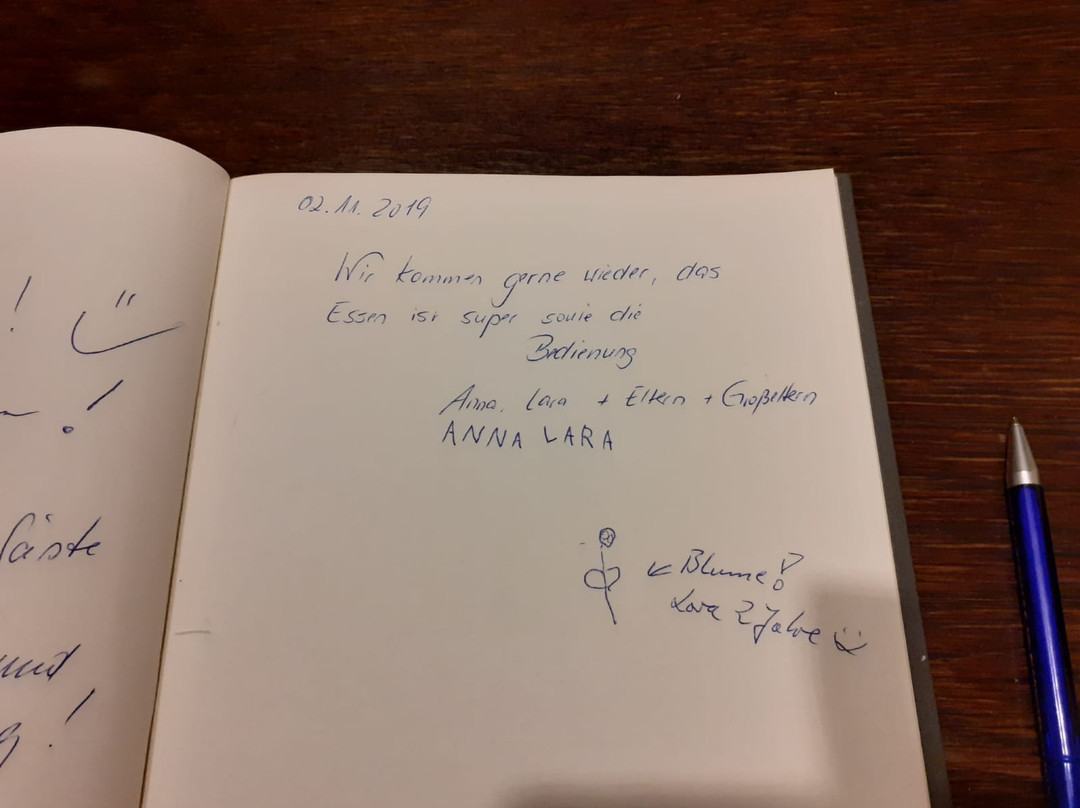 !
!
Gäste
und
!
02.11.2019
Wir kommen gerne wieder, das
Essen ist super sowie die
Bedienung
Anna, Lara + Eltern + Großeltern
ANNA LARA
← Blume!
Lara 2 Jahre